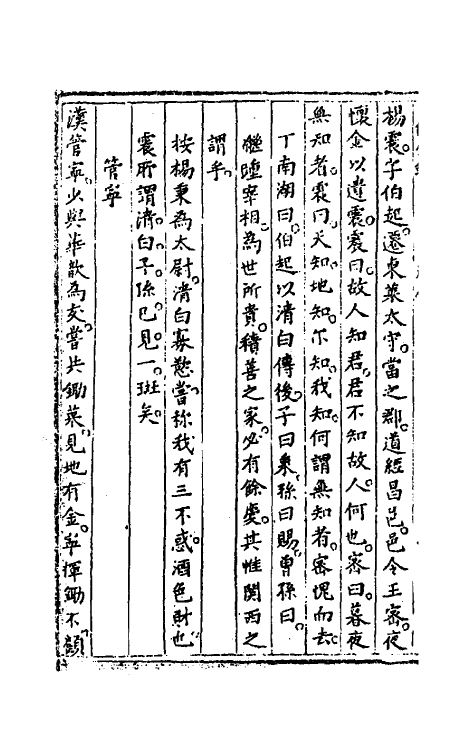 楊震。字伯起。遷東萊太守。當之郡。道經昌邑。邑令王密。夜
懷金以遺震。震曰。故人知君。君不知故人。何也。密曰。暮夜
無知者。震曰。天知地知。尔知。我知。何謂無知者。密愧而去。
丁南湖曰。伯起以清白傳後。子曰秉。孫曰賜。曾孫曰。
繼踵宰相。為世所貴。積善之家。必有餘慶。其惟関西之
謂乎。
按楊秉為太尉。清白寡慾。嘗称我有三不惑。酒色財也
震所謂清白子孫。已見一斑矣。
管寧
漢管寧。少與華歆為友。嘗共鋤菜。見地有金。寧揮鋤不顧